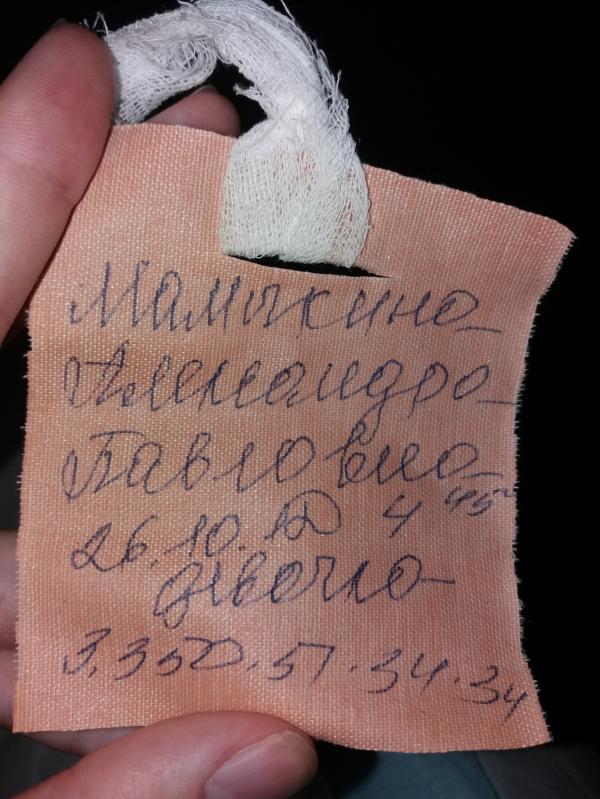 Мамыкина
Александра
Павловна
26.10.12 4 45
девочка
3.350.51.34.34